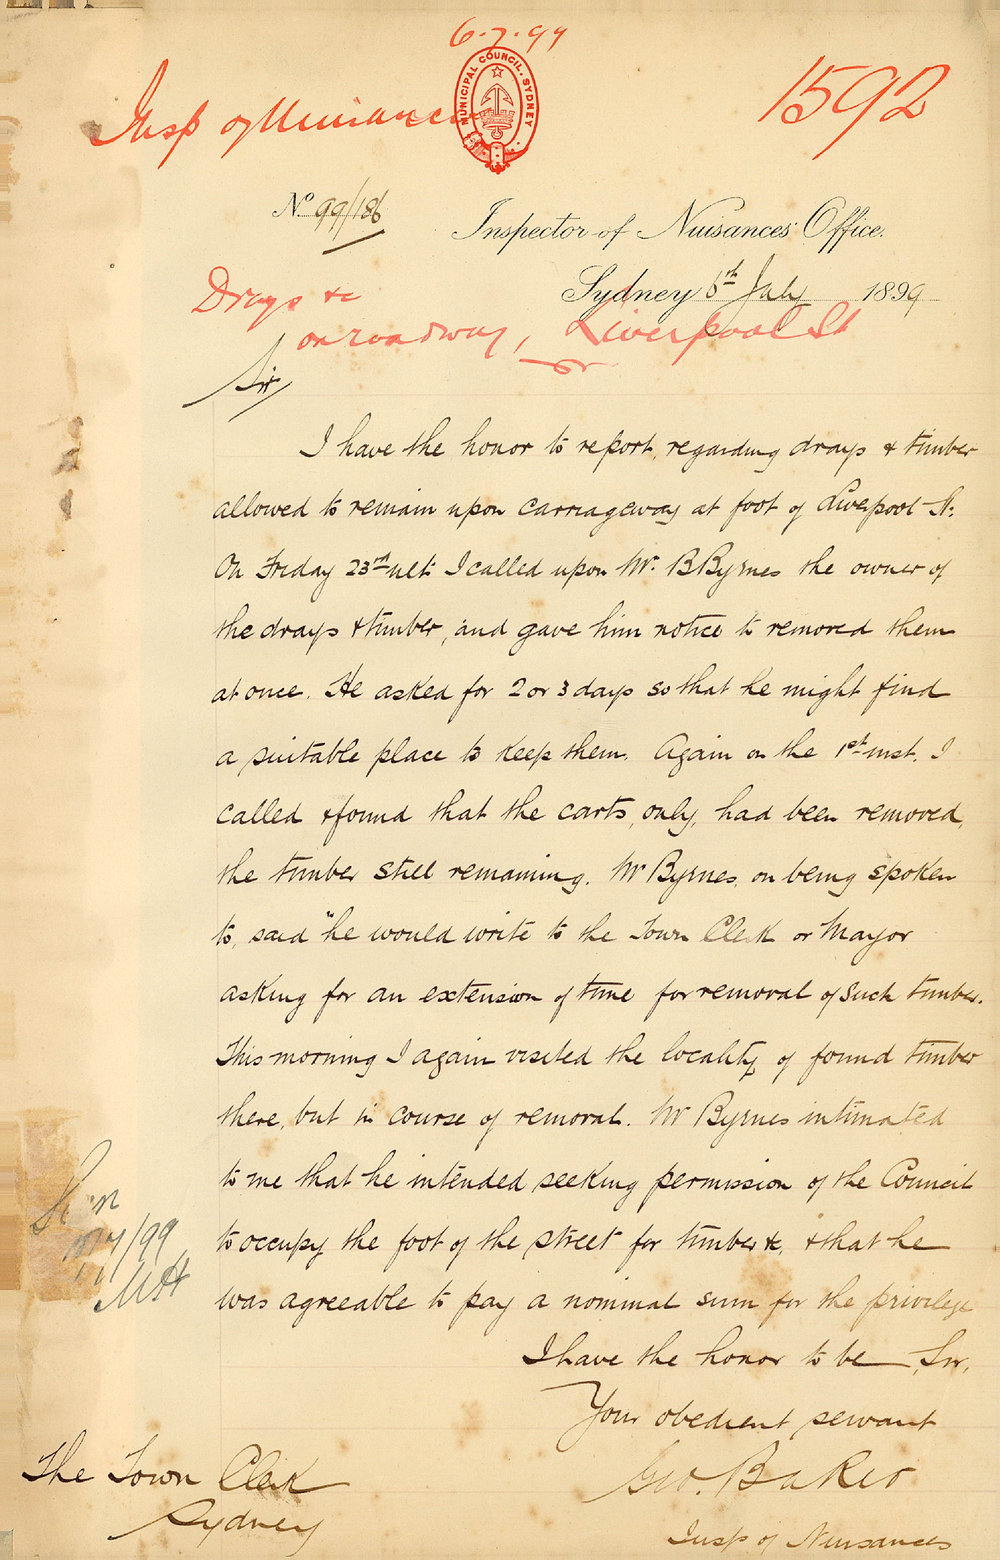 6.7.99
MUNICIPAL COUNCIL. SYDNEY
Insp of Nuisances
1592
No 99/186
Inspector of Nuisances' Office.
Sydney 6th July 1899
Drays &c
on roadway, Liverpool St
Sir,
I have the honor to report, regarding drays & timber
allowed to remain upon carriageway at foot of Liverpool St.
On Friday 23rd ult I called upon Mr. B Byrnes the owner of
the drays & timber, and gave him notice to removed them
at once. He asked for 2 or 3 days so that he might find
a suitable place to keep them. Again on the 1st inst. I
called & found that the carts, only, had been removed,
the timber still remaining. Mr Byrnes, on being spoken
to, said "he would write to the Town Clerk or Mayor
asking for an extension of time for removal of such timber.
This morning I again visited the locality, & found timber
there, but in course of removal. Mr Byrnes intimated
to me that he intended seeking permission of the Council
to occupy the foot of the street for timber &c, & that he
was agreeable to pay a nominal sum for the privilege
I have the honor to be Sir,
Your obedient servant
Geo. Baker
Insp of Nuisances
The Town Clerk
Sydney
7/99